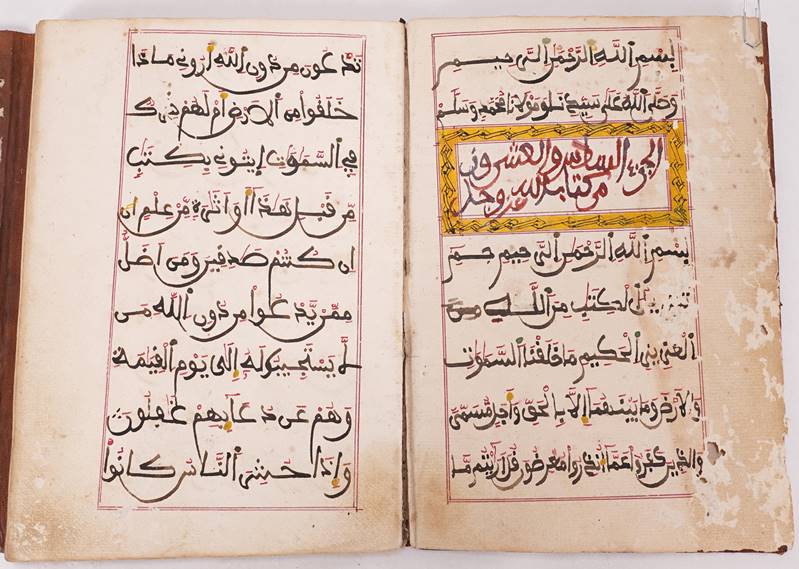 بسم الله الرحمن الرحيم
وصلى الله على سيدنا ومولانا محمد وسلم
الجزء السادس والعشرون
من كتاب الله عز وجل
بسم الله الرحمن الرحيم حم
تنزيل الكتب من الله
العزيز الحكيم ما خلقنا السموت
والارض وما بينهما إلا بالحق وأجل مسمى
والذين كفروا عما أنذروا معرضون قل أريتم ما
تدعون من دون الله أروني ماذا
خلقوا من الأرض أم لهم شرك
في السموت إيتوني بكتب
من قبل هذا أو أثرة من علم ان
ان كنتم صدقين ومن اضل
ممن يدعوا من دون الله من
لا يستجيب له إلى يوم القيمة
وهم عن دعايهم غفلون
وإذا حشر الناس كانوا